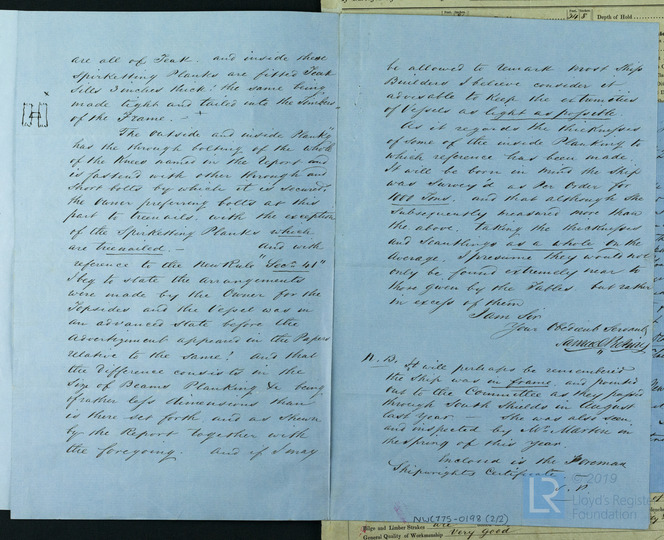 are all of Teak. and inside these
Spirketting Planks are fitted Teak
Sills 3 inches thick! the same being
made tight and tailed into the Timbers
of the Frame. —
The Outside and inside Plank'g
has the through bolting of the whole
of the Knees named in the Report and
is fastend with other through and
Short bolts by which it is secured,
the Owner preferring bolts at this
part to trenails. with the exception
of the Spirketting Planks which
are trenailed. — And with
reference to the New Rule "Sec. 41"
I beg to state the arrangements
were made by the Owner for the
Topsides and the Vessel was in
an advanced state before the
advertizement appeared in the Papers
relative to the Same! and that
the difference consists in the
Size of Beams Planking &c being
of rather less dimensions than
is there set forth and as shewn
by the Report together with
the foregoing. And if I may
be allowed to remark most Ship
Builders I believe consider it
advisable to keep the extremities
of Vessels as light as possible.
As it regards the thicknesses
of some of the inside Planking to
which reference has been made.
It will be born in mind the Ship
was Survey'd as Per Order for
1000 Tons. and that although she
Subsequently measured more than
the above. taking the thicknesses
and Scantlings as a whole on the
Average. I presume they would not
only be found extremely near to
those given by the Tables. but rather
in excess of them
I am Sir
Your Obedient Servant
Samuel
N.B. It will perhaps be remembered
the Ship was in frame, and pointed
out to the Committee as they passed
through South Shields in August
last year — She was also seen
and inspected by Mr Martin in
the Spring of this Year.
Inclosed is the Foreman
Shipwrights Certificate —
S. P.
NWC775-0198 (2/2)
Depth of Hold
Bilge and Limber Strakes are
General Quality of Workmanship Very Good
© 2019
LR
Lloyd's Register
Foundation